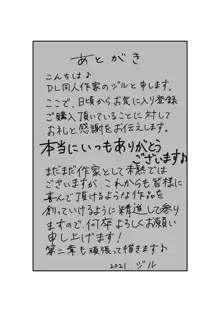 あとがき
こんちは♪
DL同人作家のジルと申します。
ここで、日頃からお気に入り登録
ご購入頂いていることに対して
お礼と感謝をお伝えします。
本当にいつもありがとう
ございます♪
まだまだ作家として未熟では
ございますが、これからも皆様に
喜んで頂けるような作品を
創っていけるように精進して参り
ますので、何卒よろしくお願い
申し上げます!
第二季も頑張って描きます♪
2021 ジル